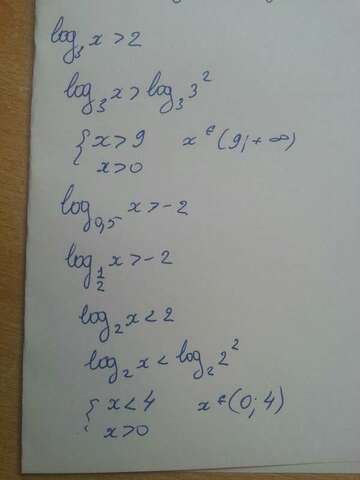 log₃ x > 2
log₃ x > log₃ 3²
{ x > 9 x ∈ (9; +∞)
x > 0
log₀,₅ x > -2
log_{1/2} x > -2
log₂ x < 2
log₂ x < log₂ 2²
{ x < 4 x ∈ (0; 4)
x > 0